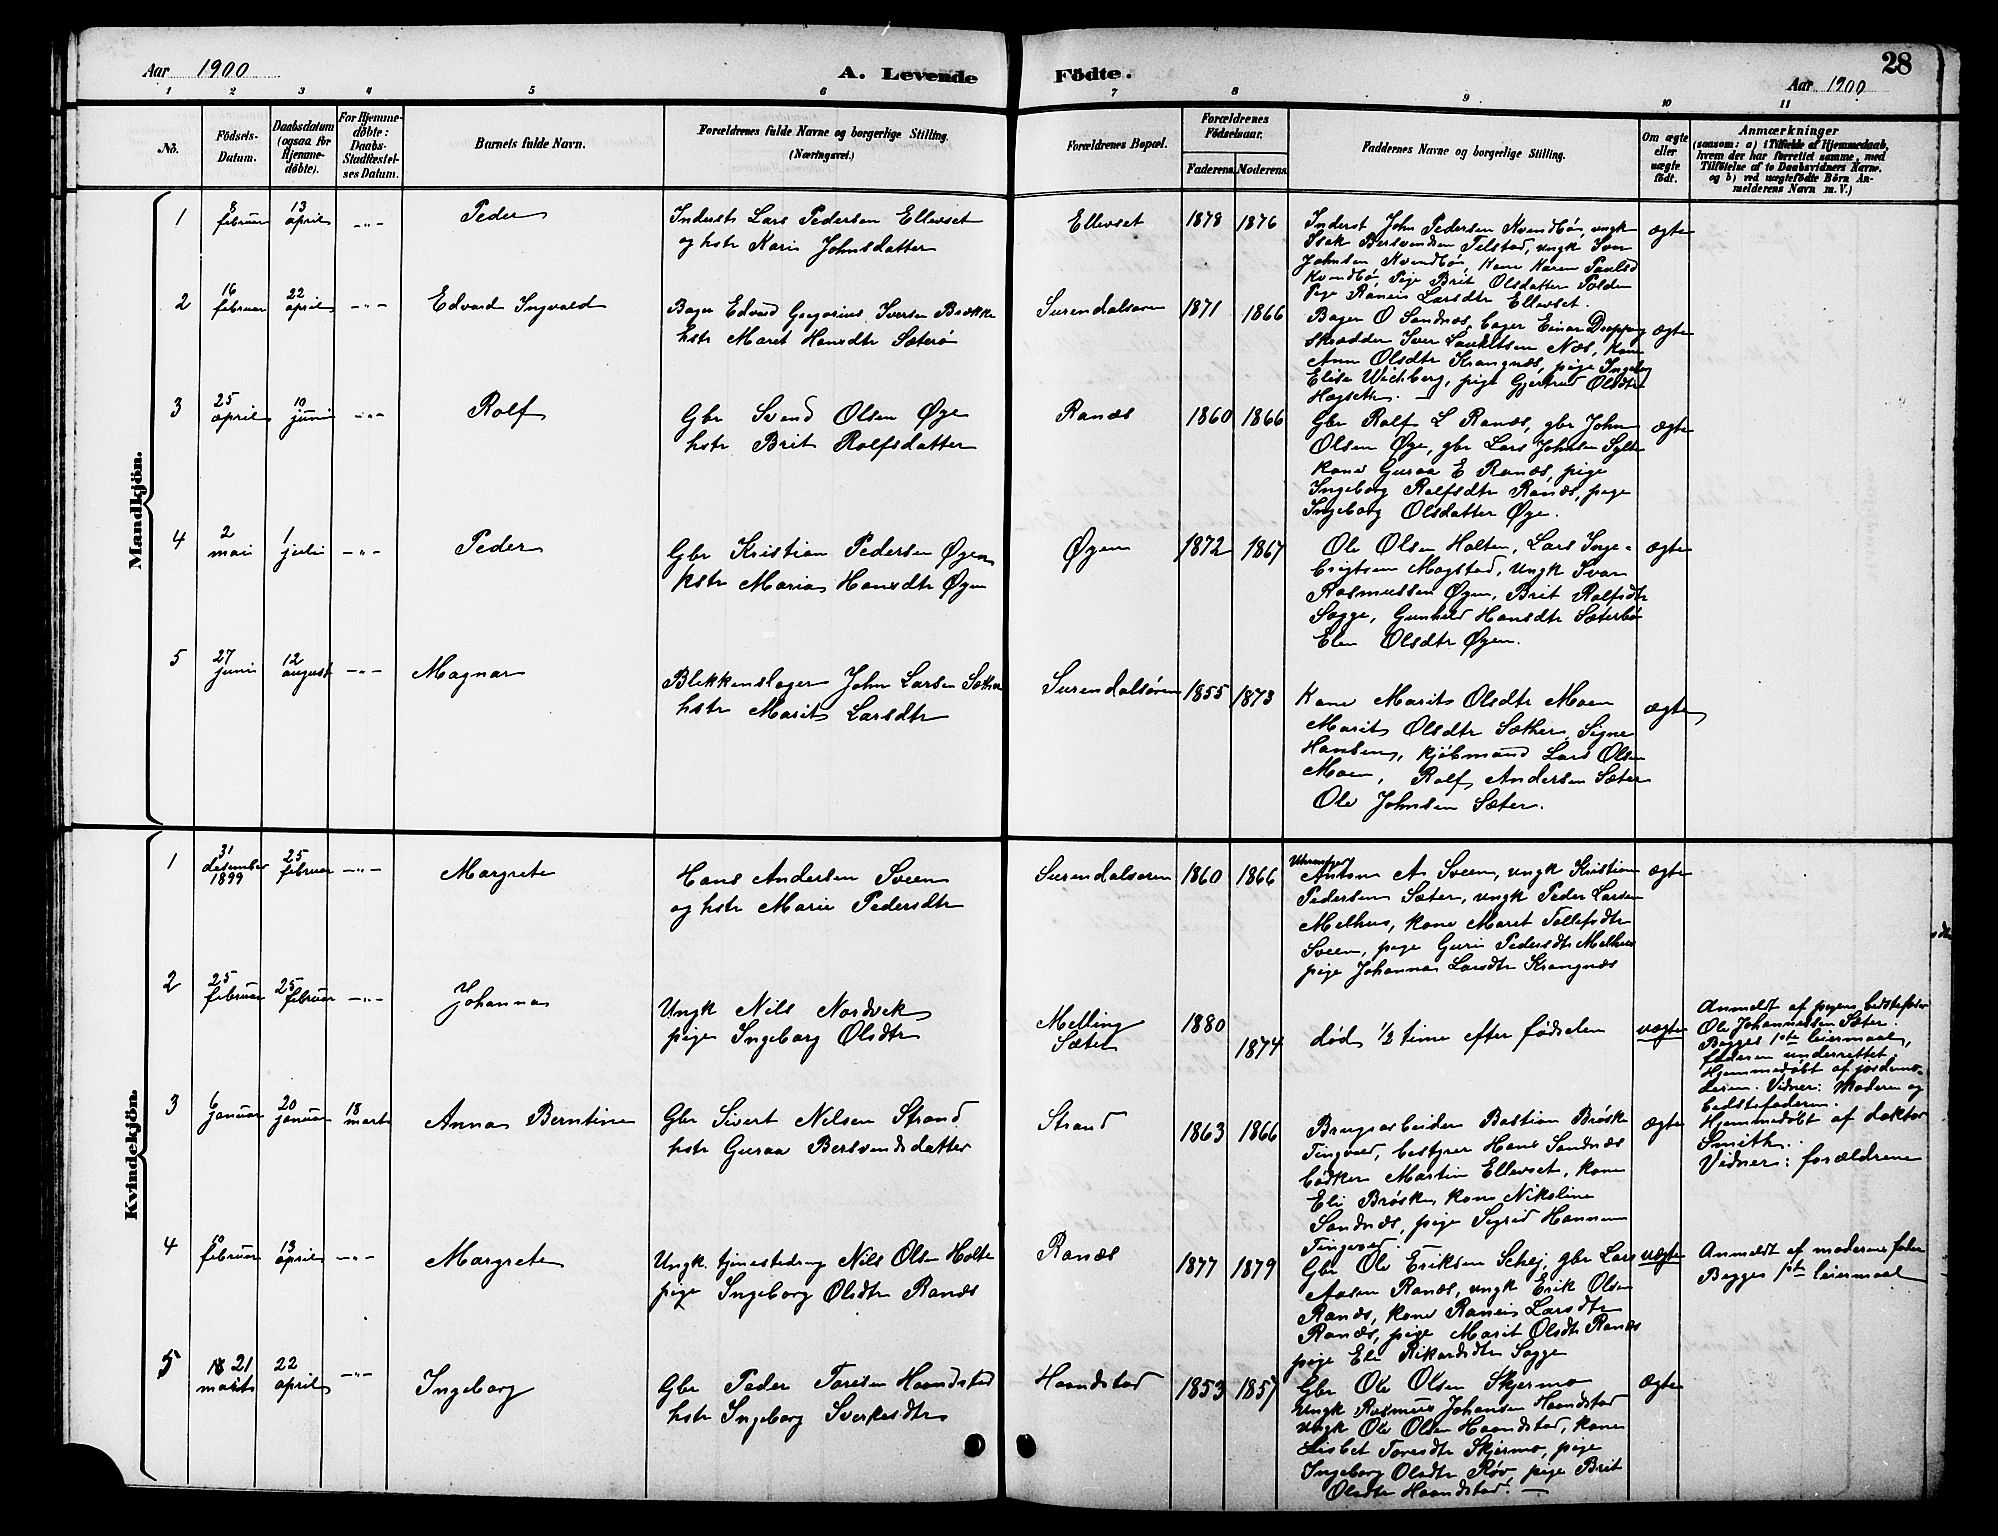 Aar 1900
A. Levende Födte.
28
Aar 1900
1 2 3 4 5 6 7 8 9 10 11
No.
Födsels-
Datum.
Daabsdatum
(ogsaa for
Hjemme-
döbte).
For Hjemme-
døbte:
Daabs-
Stadfæstel-
ses Datum.
Barnets fulde Navn.
Forældrenes fulde Navne og borgerlige Stilling.
(Næringsvei.)
Forældrenes Bopæl.
Forældrenes
Födselsaar.
Faderens Moderens
Faddernes Navne og borgerlige Stilling.
Om ægte
eller
uægte
födt.
Anmærkninger
(saasom: a) i Tilfælde af Hjemmedaab,
hvem der har forrettet samme, med
Tilföielse af to Daabsvidners Navne.
og b) ved uægtefödte Börn An-
melderens Navn m. V.)
Mandkjön.
1
8
februar
13
april
-„-
Peder
Inderst Lars Pedersen Ellevset
og hstr Kari Johnsdatter
Ellevset
1878
1876
Inderst John Pedersen Kvendbø, ungk
Isak Bersvendsen Telstad, ungk Ivar
Johnsen Kvendbø, Kone Karen Paulsd
Kvendbø, Pige Brit Olsdatter Solem
Pige Ranei Larsdtr Ellevset.
ægte
2
16
februar
22
april
-„-
Edvard Ingvald
Bager Edvard Gregorius Iversen Brække
hstr Maret Hansdtr Sæterø
Surendalsøren
1871
1866
Bager O Sandnæs, bager Einar Dropping
Skrædder Iver Lauritsen Næs, kone
Ane Olsdtr Krangnæs, pige Ingeborg
Elise Wichberg, pige Gjertrud Olsdtr
Hogseth. —
ægte
3
25
april
10
juni
-„-
Rolf
Gbr Svend Olsen Øye
hstr Brit Rolfsdatter
Ranæs
1860
1866
Gbr Rolf L Ranæs, gbr John
Olsen Øye, gbr Lars Johnsen Sylte
Kone Guraa E Ranæs, pige
Ingeborg Rolfsdtr Ranæs, pige
Ingeborg Olsdatter Øye.
ægte
4
2
mai
1
juli
-„-
Peder
Gbr Kristian Pedersen Øyen
hstr Maria Hansdtr Øyen
Øyen
1872
1867
Ole Olsen Holten, Lars Inge-
brigtsen Mogstad, ungk Ivar
Rasmussen Øyen, Brit Rolfsdtr
Sogge, Gunhild Hansdtr Sæterbø
Elen Olsdtr Øyen.
ægte
5
27
juni
12
august
-„-
Magnar
Blikkenslager John Larsen Sæther
hstr Marit Larsdtr
Surendalsøren
1855
1873
Kone Marit Olsdtr Moen
Marit Olsdtr Sæther, Signe
Hansen, kjøbmand Lars Olsen
Moen, Rolf Andersen Sæter
Ole Johnsen Sæter.
ægte
Kvindekjön.
1
31
desember
1899
25
februar
-„-
Margrete
Hans Andersen Sveen
og hstr Marie Pedersdtr
Surendalsøren
1860
1866
Anton A Sveen, ungk Kristian
Pedersen Sæter, ungk Peder Larsen
Melhus, kone Maret Tollefsdtr
Sveen, pige Guri Pedersdtr Melhus
pige Johanna Larsdtr Krangnæs
ægte
2
25
februar
25
februar
-„-
Johanna
Ungk Nils Nordvik
pige Ingeborg Olsdtr
Melling
Sæter
1880
1874
død ½ time efter fødselen
uægte
Anmeldt af pigens bedstefader
Ole Johannessen Sæter.
Begges 1ste leiermaal,
faderen underrettet.
Hjemmedøbt af jordemo-
deren. Vidner: Moderen og
bedstefaderen.
3
6
januar
20
januar
18
marts
Anna Berntine
Gbr Sivert Nilsen Strand
hstr Guraa Bersvendsdatter
Strand
1863
1866
Brugsarbeider Bastian Brøske
Tingvold, bestyrer Hans Sandnæs
bødker Martin Ellevset, kone
Eli Brøske, kone Nikoline
Sandnæs, pige Sigrid Hannem
Tingvold.
ægte
Hjemmedøbt af doktor
Smith.
Vidner: forældrene
4
10
februar
13
april
-„-
Margrete
Ungk. tjenestedreng Nils Olsen Holte
pige Ingeborg Olsdtr Ranæs
Ranæs
1877
1879
Gbr Ole Eriksen Schei, gbr Lars
Aasen Ranæs, ungk Erik Olsen
Ranæs, kone Ranei Larsdtr
Ranæs, pige Marit Olsdtr Ranæs
pige Eli Rikardsdtr Sogge
uægte
Anmeldt af moderens fader
Begges 1ste leiermaal
5
21
marts
22
april
-„-
Ingeborg
Gbr Peder Toresen Haandstad
hstr Ingeborg Sverkesdtr
Haandstad
1853
1857
Gbr Ole Olsen Skjermo
Ungk Rasmus Johansen Haandstad
ungk Ole Olsen Haandstad, kone
Lisbet Toresdtr Skjermo, pige
Ingeborg Olsdtr Røv, pige Brit
Olsdtr Haandstad. —
ægte